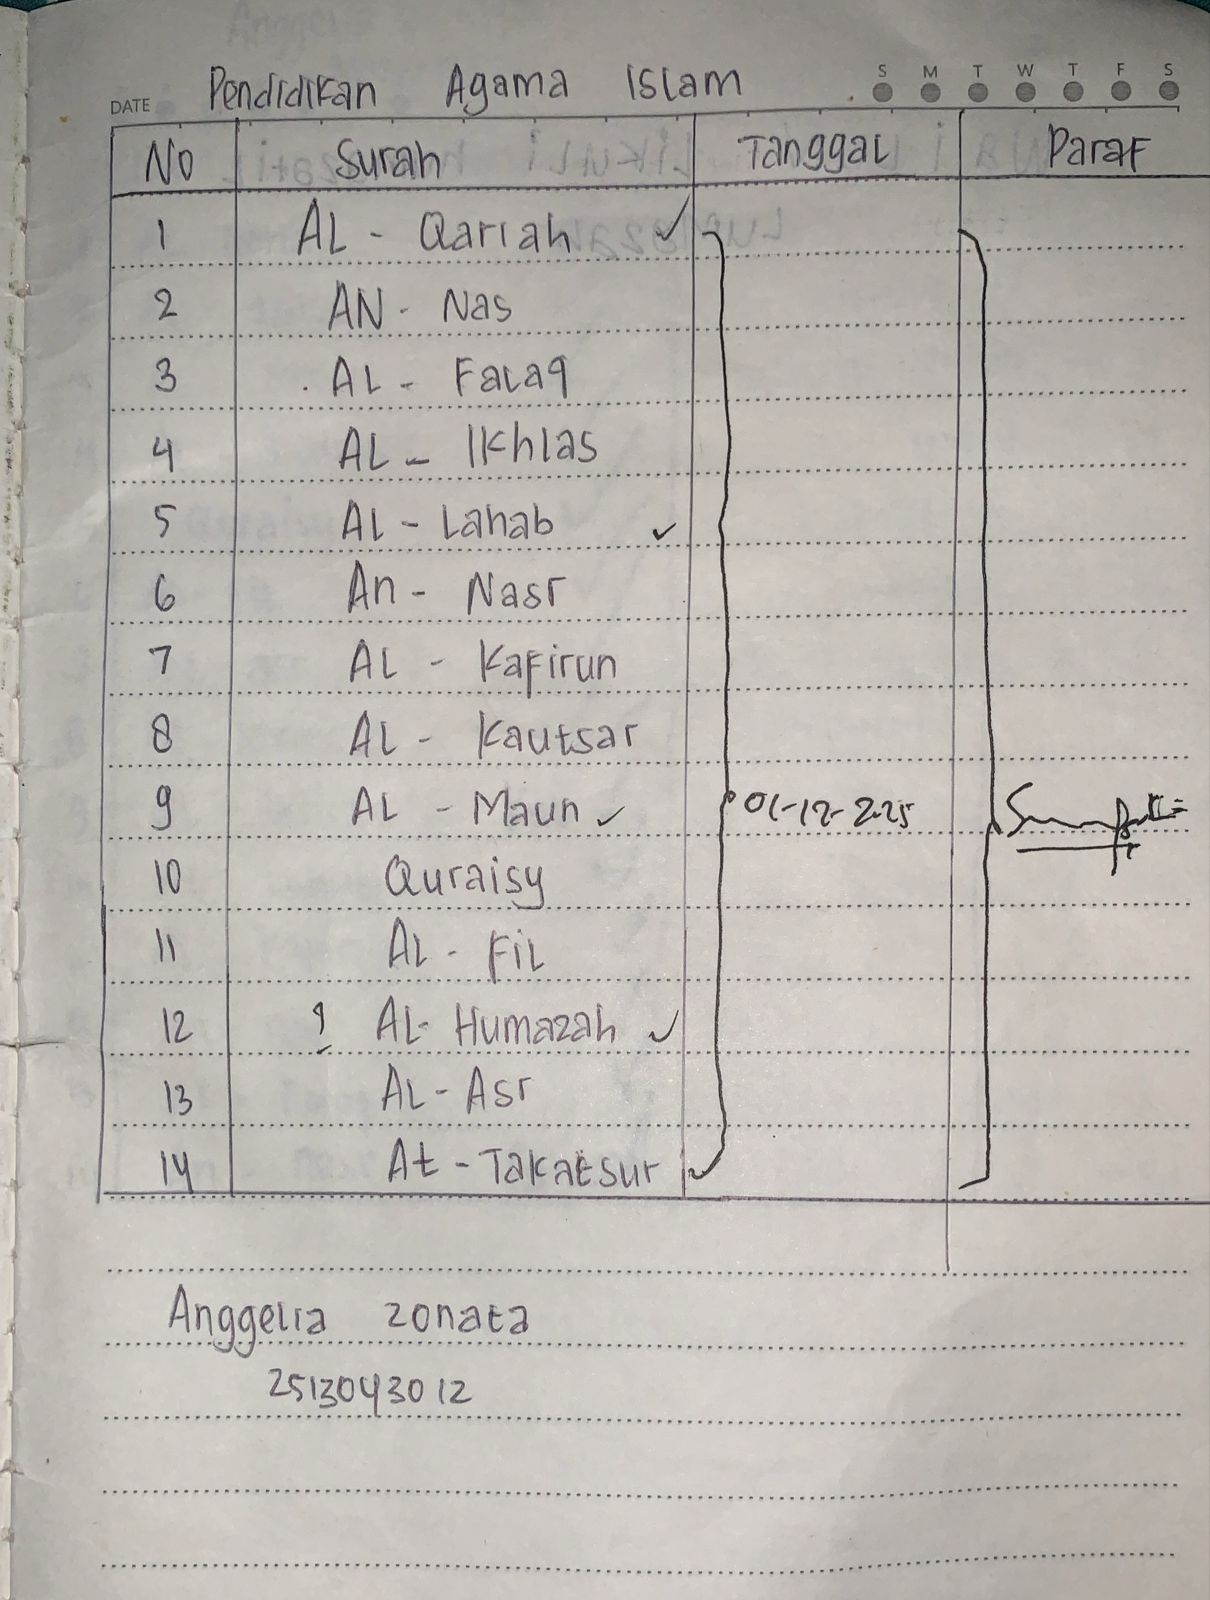 S M T W T F S
DATE Pendidikan Agama Islam
No Surah Tanggal Paraf
1 AL - Qariah ✓
2 AN - Nas
3 AL - Falaq
4 AL - Ikhlas
5 AL - Lahab ✓
6 An - Nasr
7 AL - Kafirun
8 AL - Kautsar
9 AL - Maun ✓ 01-12-2025
10 Quraisy
11 AL - Fil
12 AL- Humazah ✓
13 AL - Asr
14 At - Takatsur
Anggelia zonata
2513043012